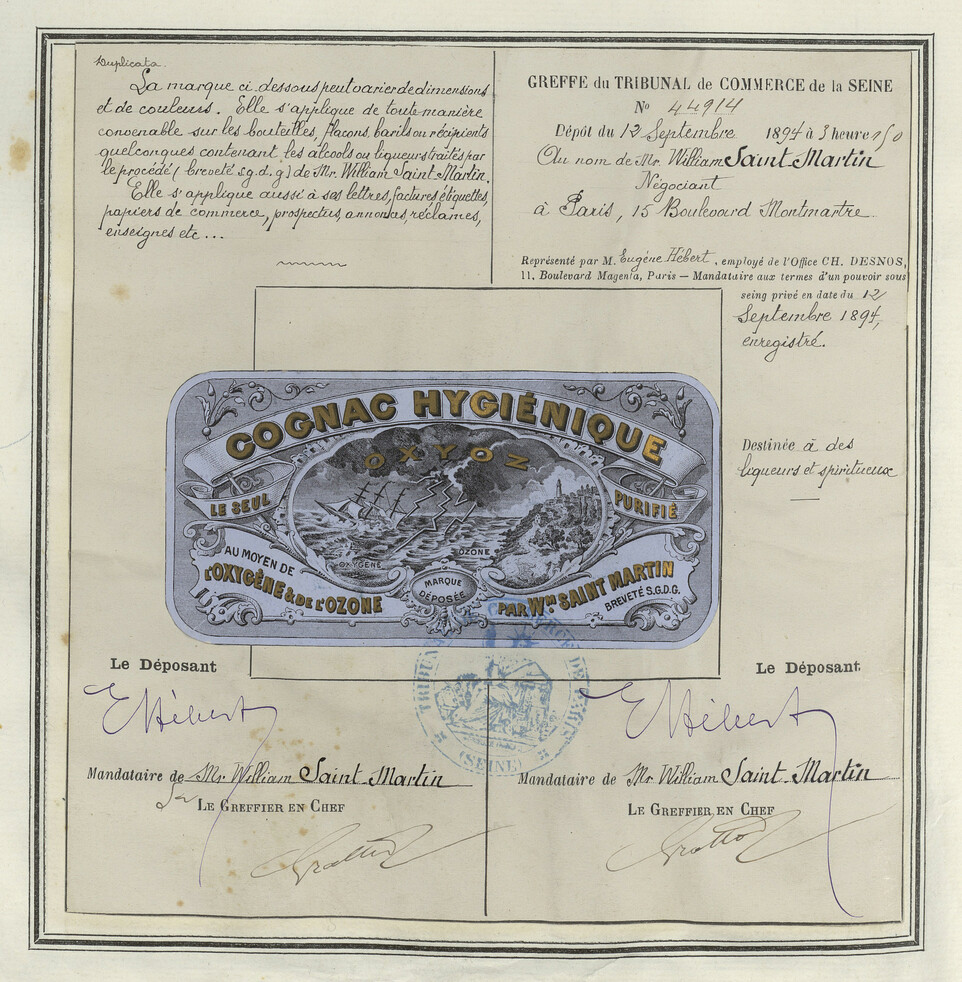 Duplicata.
La marque ci-dessous peut varier de dimensions
et de couleurs. Elle s'applique de toute manière
convenable sur les bouteilles, flacons, barils ou récipients
quelconques contenant les alcools ou liqueurs traités par
le procédé (breveté s.g.d.g) de Mr. William Saint Martin.
Elle s'applique aussi à ses lettres, factures étiquettes,
papiers de commerce, prospectus, annonces, réclames,
enseignes etc...
GREFFE du TRIBUNAL de COMMERCE de la SEINE
No 44914
Dépôt du 12 Septembre 1894 à 3 heure 1/0
Au nom de Mr. William Saint-Martin
Négociant
à Paris, 15 Boulevard Montmartre
Représenté par M. Eugène Hébert, employé de l'Office CH. DESNOS,
11, Boulevard Magenta, Paris — Mandataire aux termes d'un pouvoir sous
seing privé en date du 12
Septembre 1894,
enregistré.
Destinée à des
liqueurs et spiritueux
COGNAC HYGIÉNIQUE
OXYOZ
LE SEUL
PURIFIÉ
OXYGÈNE
OZONE
AU MOYEN DE
L'OXYGÈNE & DE L'OZONE
MARQUE
DÉPOSÉE
PAR WM. SAINT MARTIN
BREVETÉ S.G.D.G.
TRIBUNAL DE COMMERCE DE
(SEINE)
Le Déposant
EHébert
Mandataire de Mr William Saint-Martin
LE GREFFIER EN CHEF
Le Déposant
EHébert
Mandataire de Mr William Saint-Martin
LE GREFFIER EN CHEF